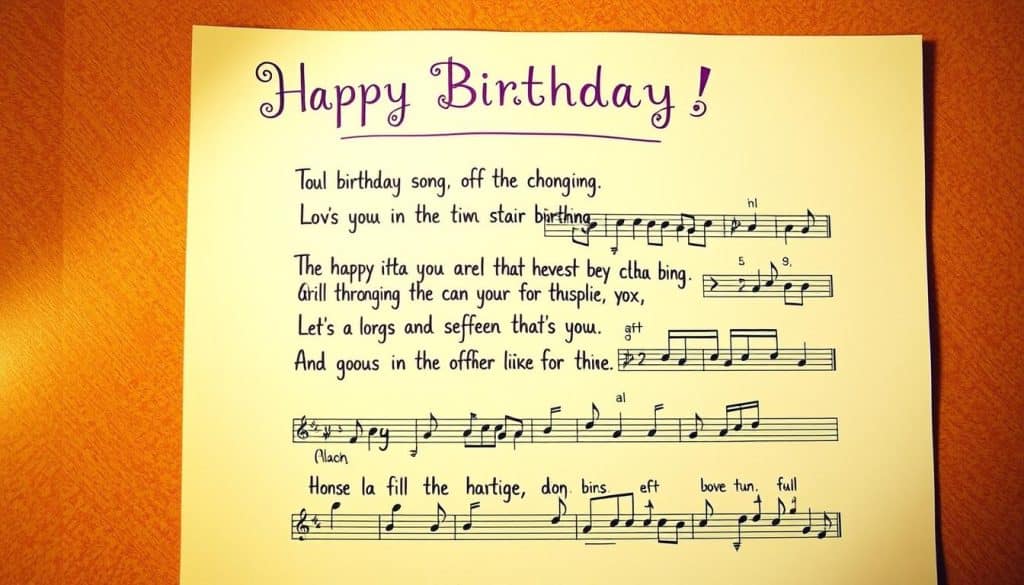 Happy Birthday!
Toul birthday song, off the chonging.
Lov's you in the tivn stair birthing
hl
The happy itta you arel that hevest bey cltha bing.
5 9.
Grill thronging the can your for thusplie, yox,
Let's a lorgs and seffeen that's you.
aft
And goous in the offher liike for thine.
al
Honse la fill the hartige, don. bins eft bove tun. full